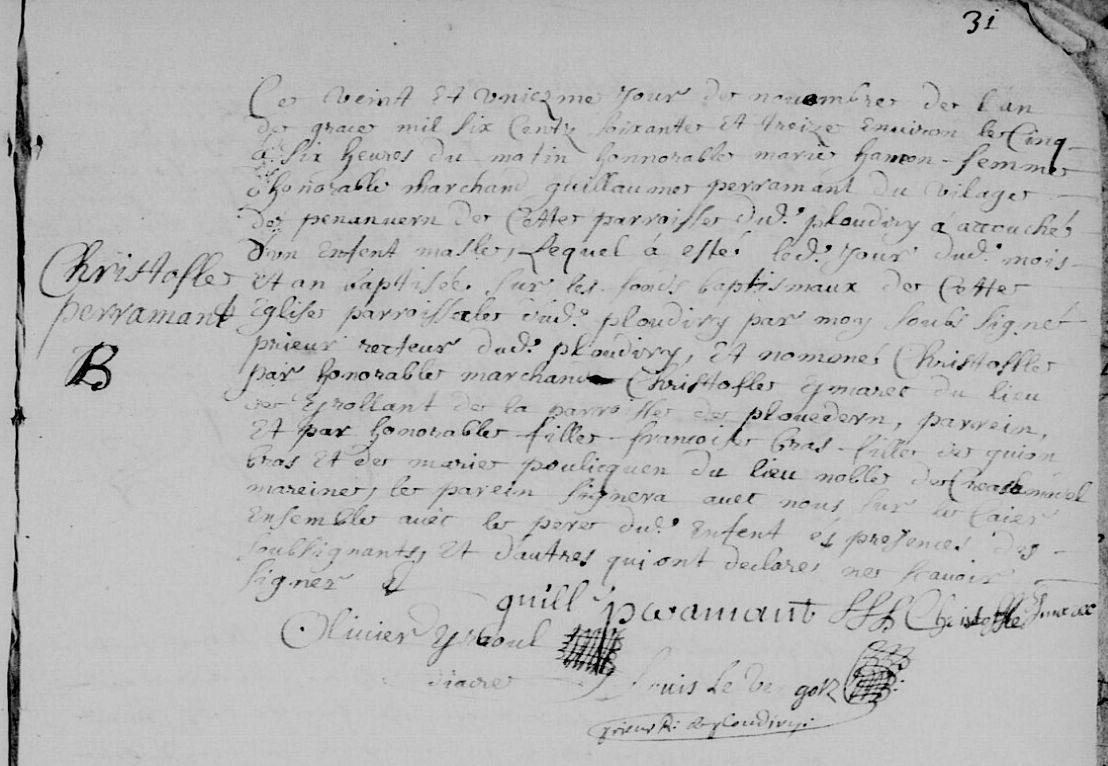 31
Ce veint et vniezme Jour de nouembre de l'an
de grace mil six Centz soixante et treize enuiron le Cinq
a six heures du matin honnorable marie hamon femme
d'honorable marchand guillaume perramant du vilage
de penanvern de Cette parroisse dud. ploudiry à accouché
d'vn enfent masle, Lequel à esté led. Jour dud. mois
et an baptisée sur les fonds baptismaux de Cette
Eglise parroissiale dud. ploudiry par moy soubsigné
prieur recteur dud. ploudiry, et nommé Christofle
par honorable marchand Christofle du lieu
de de la parroisse de plouedern, parrein,
et par honorable fille francoise bras fille de guion
bras et de marie poulicquen du lieu noble de
mareine, le parein signera auec nous sur le Caier
Ensemble auec le pere dud. enfent és presences des
soubsignants, et d'autres qui ont declaré ne scauoir
signer
Christofle
perramant
B
guill perramant Christofle
Olivier
diacre
Louis Le Ver goz
prieur R. de ploudiry.